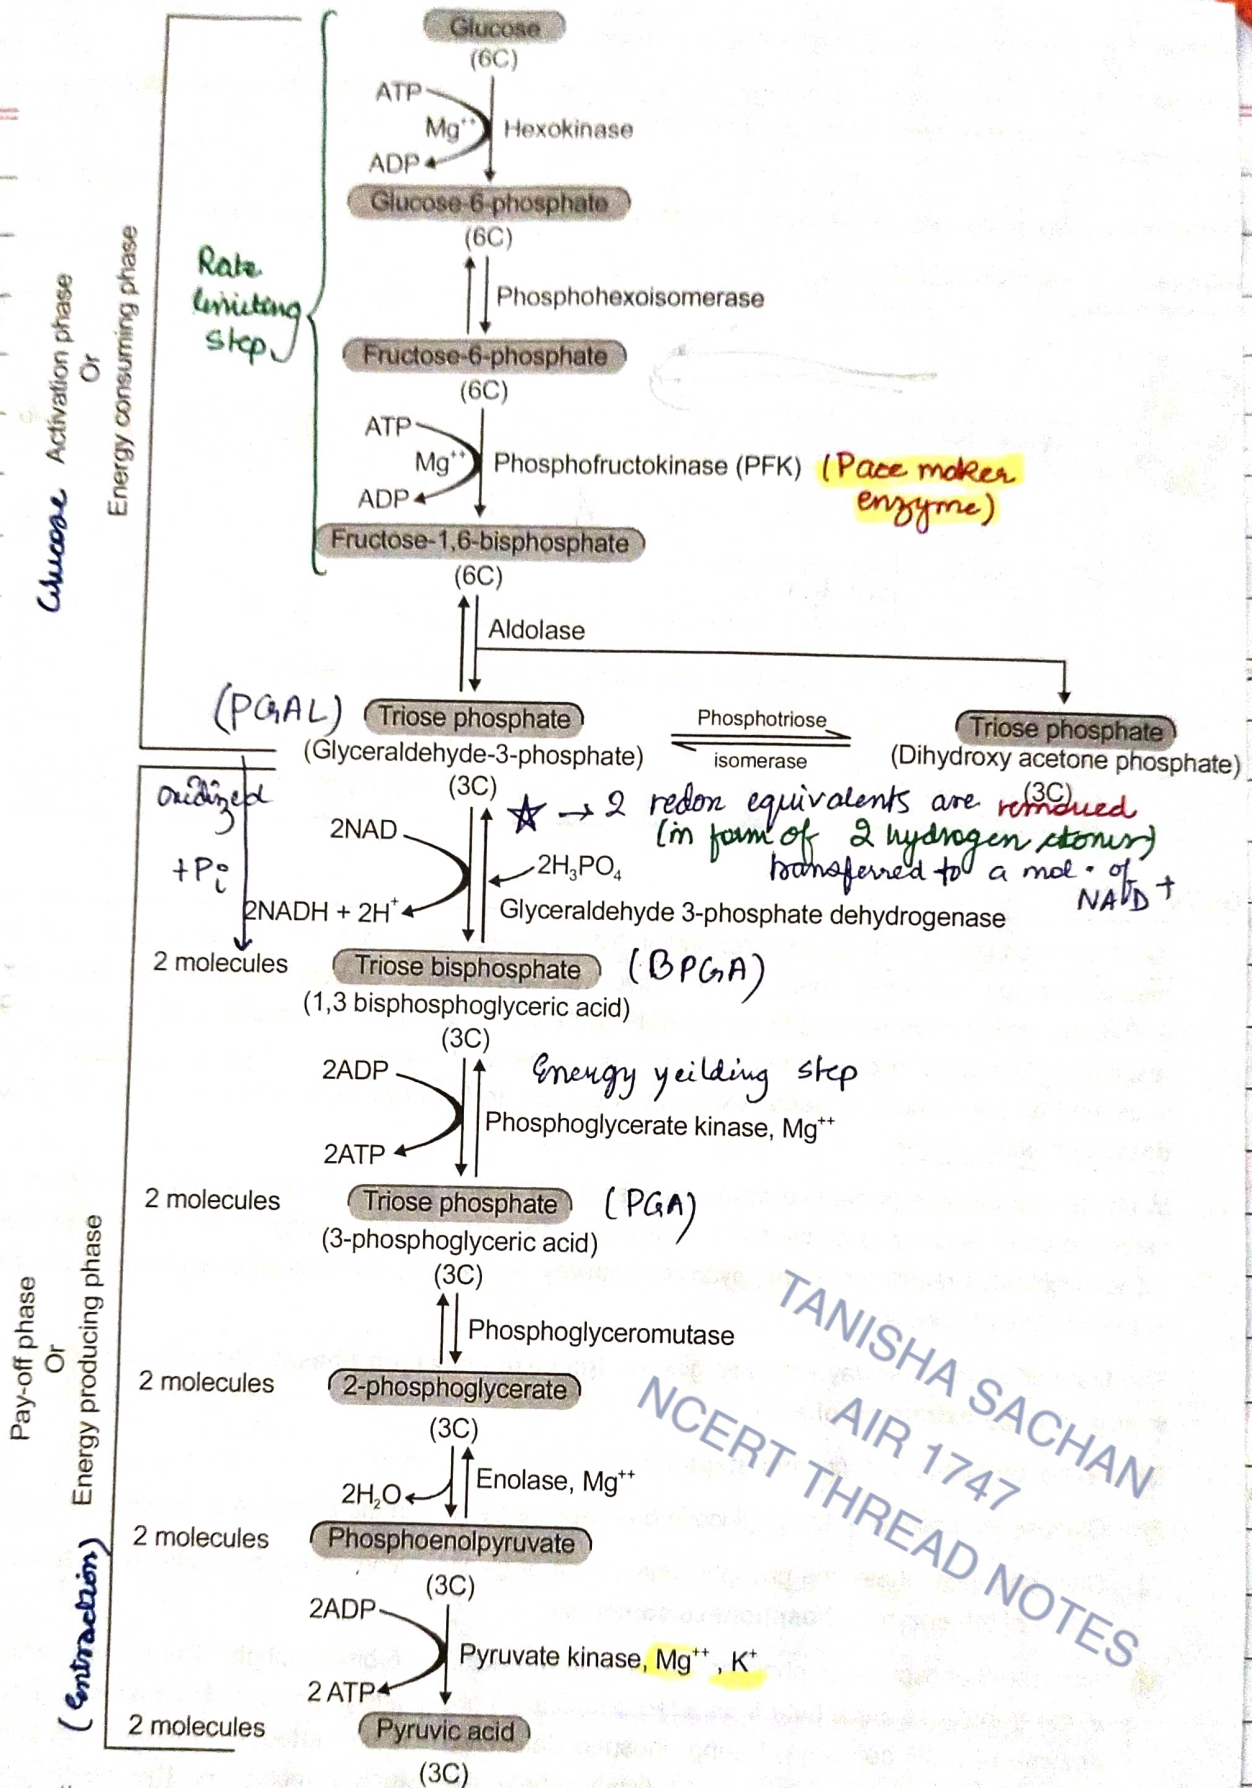 Glucose
(6C)
ATP
Mg++ Hexokinase
ADP
Glucose-6-phosphate
(6C)
Rate
limiting
step
Phosphohexoisomerase
Fructose-6-phosphate
(6C)
ATP
Mg++ Phosphofructokinase (PFK) (Pace maker
enzyme)
ADP
Fructose-1,6-bisphosphate
(6C)
Glucose Activation phase
Or
Energy consuming phase
Aldolase
(PGAL) Triose phosphate
(Glyceraldehyde-3-phosphate)
(3C)
Phosphotriose
isomerase
Triose phosphate
(Dihydroxy acetone phosphate)
(3C)
oxidized
+Pi
☆ → 2 redox equivalents are removed
(in form of 2 hydrogen atoms)
transferred to a mol. of
NAD+
2NAD
2H₃PO₄
2NADH + 2H+ Glyceraldehyde 3-phosphate dehydrogenase
2 molecules Triose bisphosphate (BPGA)
(1,3 bisphosphoglyceric acid)
(3C)
2ADP Energy yeilding step
Phosphoglycerate kinase, Mg++
2ATP
2 molecules Triose phosphate (PGA)
(3-phosphoglyceric acid)
(3C)
Phosphoglyceromutase
2 molecules 2-phosphoglycerate
(3C)
2H₂O Enolase, Mg++
2 molecules Phosphoenolpyruvate
(3C)
2ADP
Pyruvate kinase, Mg++, K+
2 ATP
2 molecules Pyruvic acid
(3C)
Pay-off phase
Or
Energy producing phase
TANISHA SACHAN
AIR 1747
NCERT THREAD NOTES